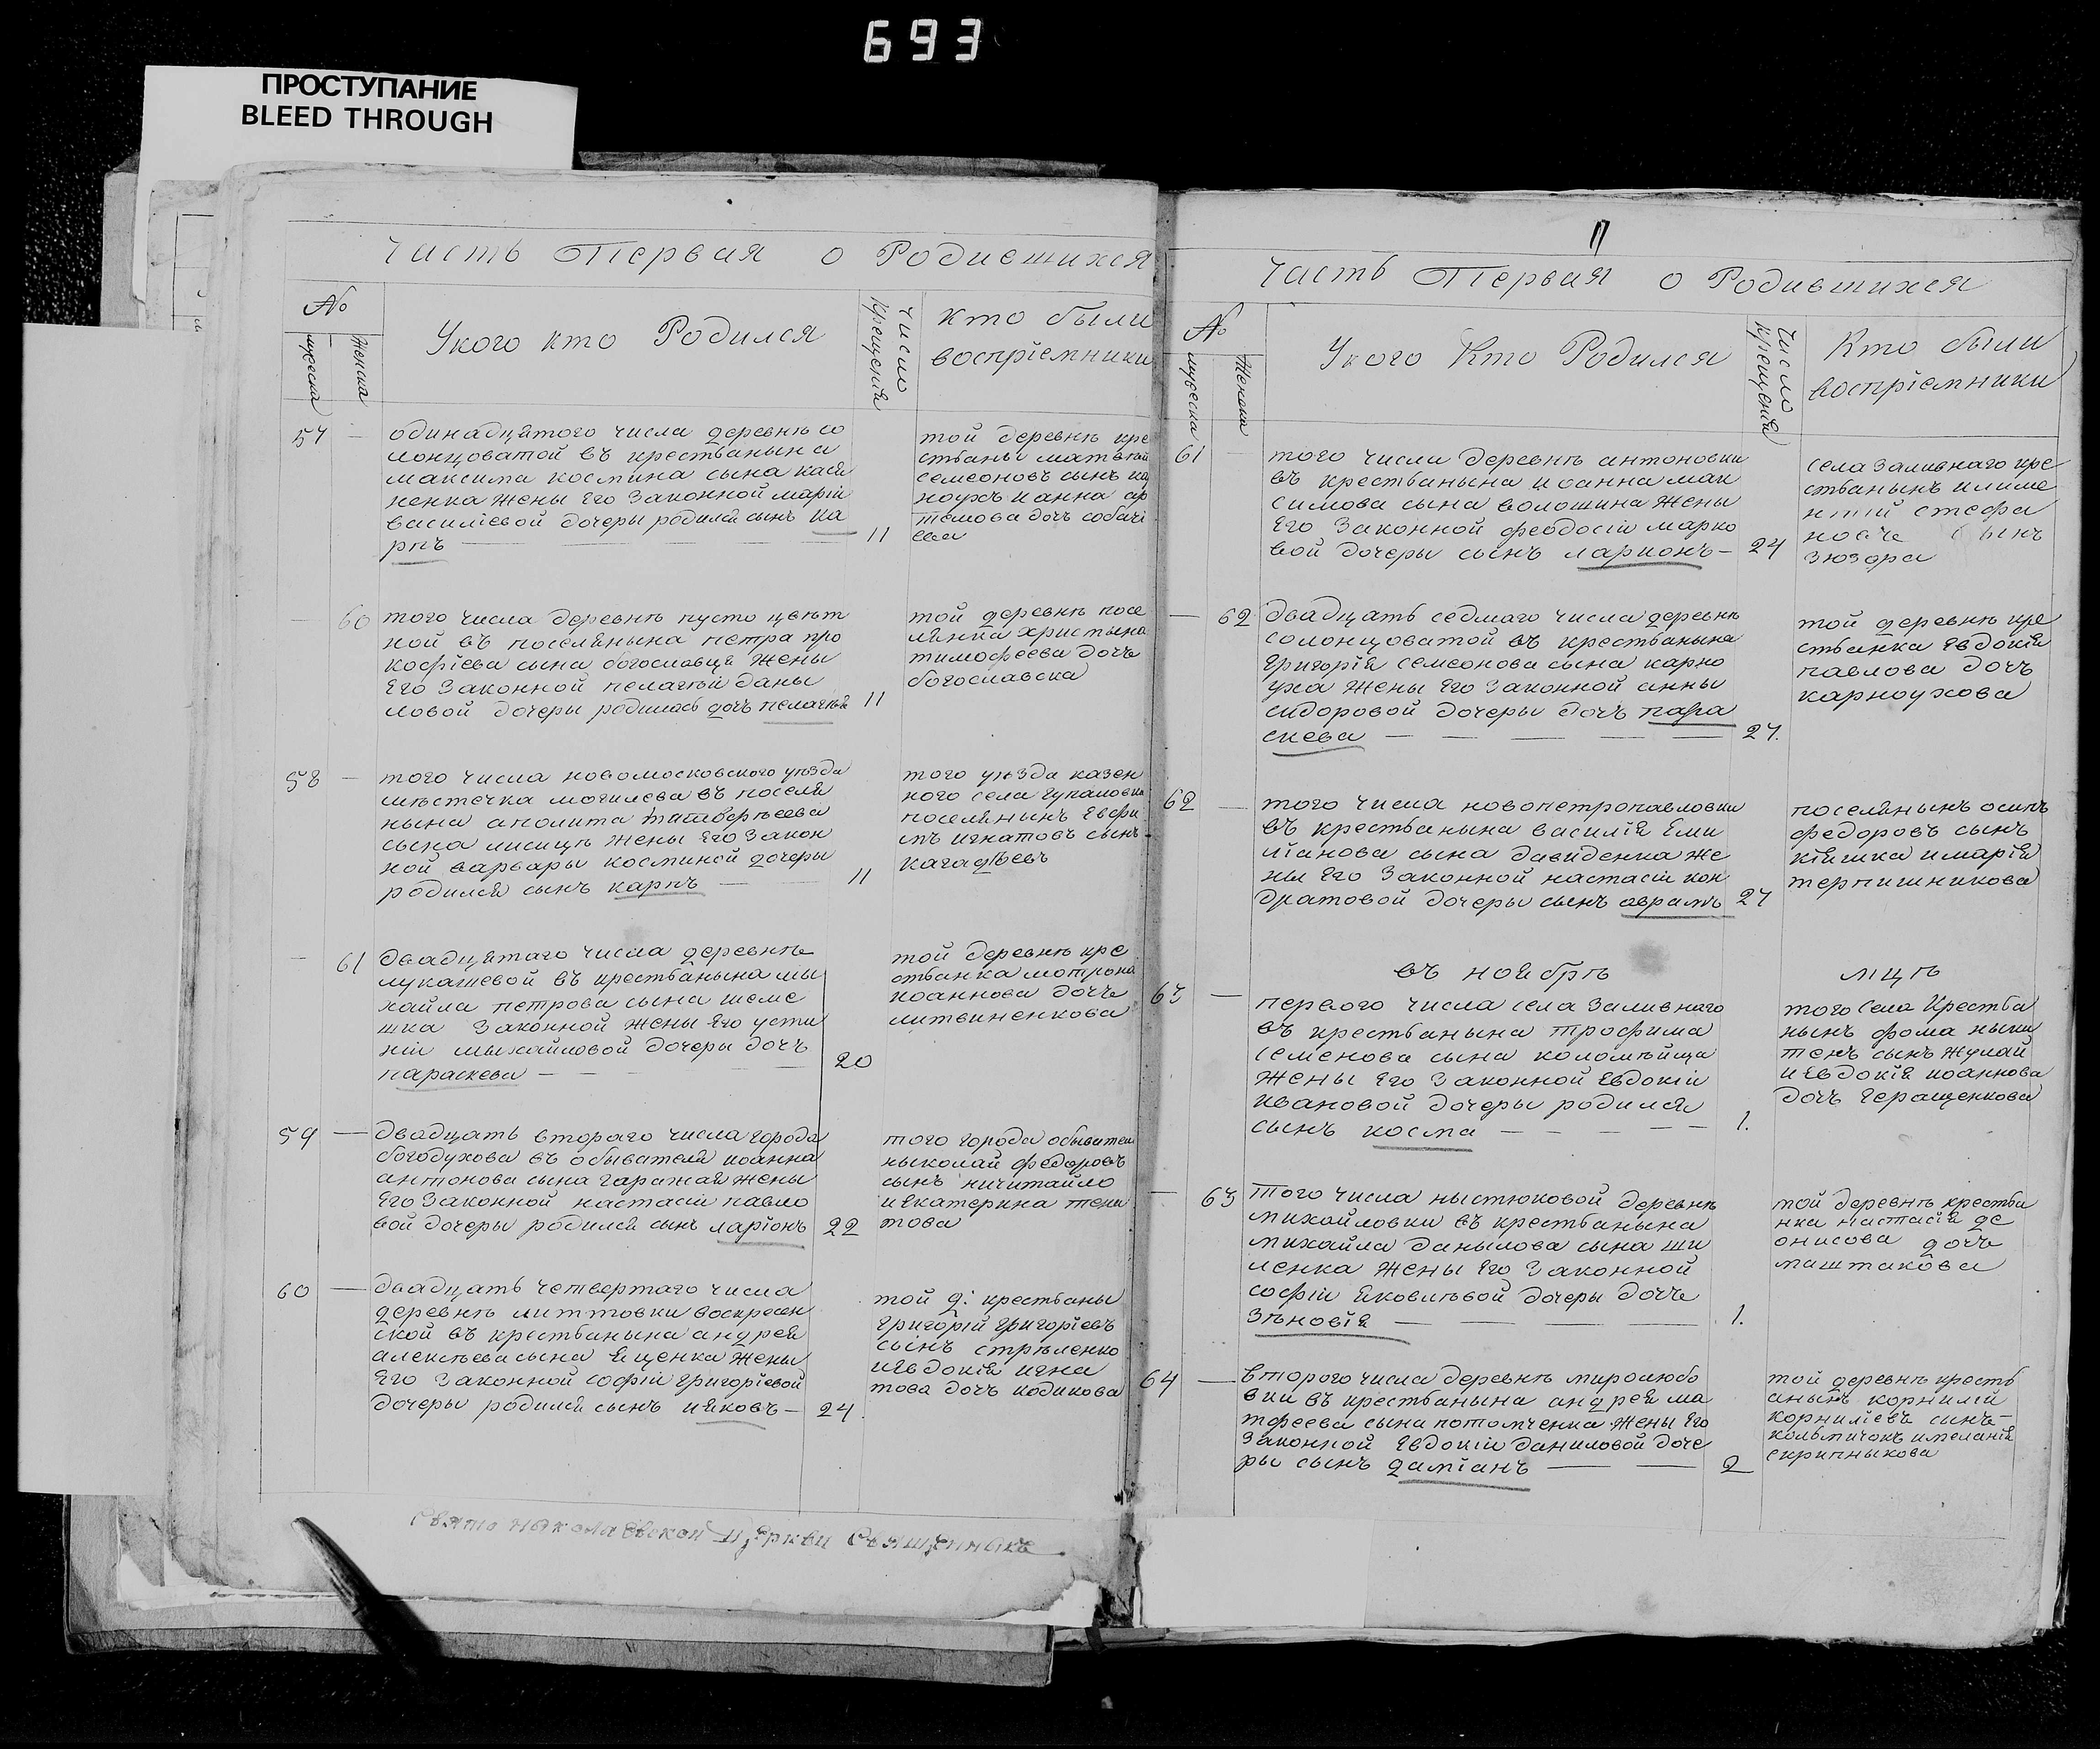 693
ПРОСТУПАНИЕ
BLEED THROUGH
Часть Первая о Родившихся
№
мужеска
женска
Укого кто Родился
число
крещенїя
кто были
воспрїемники
57
одинадцятого числа деревнѣ со
лонцоватой въ крестьянына
максима космина сына кася
ненка жены Его Законной марїи
василїевой дочеры родился сынъ ка
рпъ
11
той деревнѣ кре
стьаны матвѣй
семеоновъ сынъ ка
ноухъ и анна ар
темова дочь собачї
ева
60
того числа деревнѣ пусто цвѣт
ной въ поселянына петра про
кофїева сына богославця жены
Его Законной пелагѣи даны
ловой дочеры родилась дочь пелагѣй
11
той деревнѣ посе
лянка христына
тимофеева дочь
богославска
58
того числа новомосковского уѣзда
мѣстечка могилева въ поселя
нына аполита
сына лисицѣ жены Его закон
ной варвары косминой дочеры
родился сынъ карпъ
11
того уѣзда казен
ного села гупаловки
поселянынъ Евфи
мъ игнатовъ сынъ
61
двадцятаго числа деревнѣ
лукашевой въ крестьянына мы
хайла петрова сына шеме
шка Законной жены Его усти
нїи мыхайловой дочеры дочь
параскева
20
той деревнѣ кре
стьанка мотрона
иоаннова дочь
литвиненкова
59
двадцать втораго числа города
богодухова въ обывателя иоанна
антонова сына гаражая жены
Его Законной настасїи павло
вой дочеры родился сынъ ларїонъ
22
того города обывател
ныколай федоровъ
сынъ ничитайло
и Екатерина
това
60
двадцать четвертаго числа
деревнѣ литтовки воскресен
ской въ крестьянына андрея
алексѣева сына Яценка жены
Его Законной софїи григорїевой
дочеры родился сынъ ияковъ
24
той д: крестьаны
григорїй григорїевъ
сынъ стрѣленко
и Евдокїя игна
това дочь кодикова
Свято николаевской Церкви Священныкъ
17
Часть Первая о Родившихся
№
мужеска
женска
Укого Кто Родился
число
крещенїя
Кто были
воспрїемники
61
того числа деревнѣ антоновки
въ крестьанына иоанна мак
симова сына волошина жены
Его Законной феодосїи марко
вой дочеры сынъ ларионъ
24
села Заливнаго кре
стьанынъ климе
нтїй стефа
новъ сынъ
зюзора
62
двадцать седмаго числа деревнѣ
солонцоватой въ крестьанына
григорїя семеонова сына карно
уха жены Его Законной анны
сидоровой дочеры дочь пара
скева
27.
той деревнѣ кре
стьанка Евдокїя
павлова дочь
карноухова
62
того числа новопетропавловки
въ крестьанына василїя Еми
лїанова сына давиденка же
ны Его Законной настасїи кон
дратовой дочеры сынъ аврамъ
27
поселянынъ осипъ
федоровъ сынъ
кїяшка и марїя
терпишникова
въ ноябрѣ мцѣ
63
первого числа села Заливнаго
въ крестьанына трофима
семенова сына коломѣйца
жены Его Законной Евдокїи
ивановой дочеры родился
сынъ косма
1.
того села Крестьа
нынъ фома ныки
тенъ сынъ жулай
и Евдокїя иоаннова
дочь геращенкова
63
того числа ныстюковой деревнѣ
михайловки въ крестьанына
михайла данылова сына ши
ленка жены Его Законной
софїи яковлѣвой дочеры дочь
зѣновїя
1.
той деревнѣ крестьа
нка настасїя де
онисова дочь
маштакова
64
второго числа деревнѣ миролюбо
вки въ крестьанына андрея ма
тфеева сына потомченка жены Его
Законной Евдокїи даниловой доче
ры сынъ дамїанъ
2
той деревнѣ кресть
анынъ корнилїй
корнилїевъ сынъ
колмичокъ и меланїя
скрипныкова